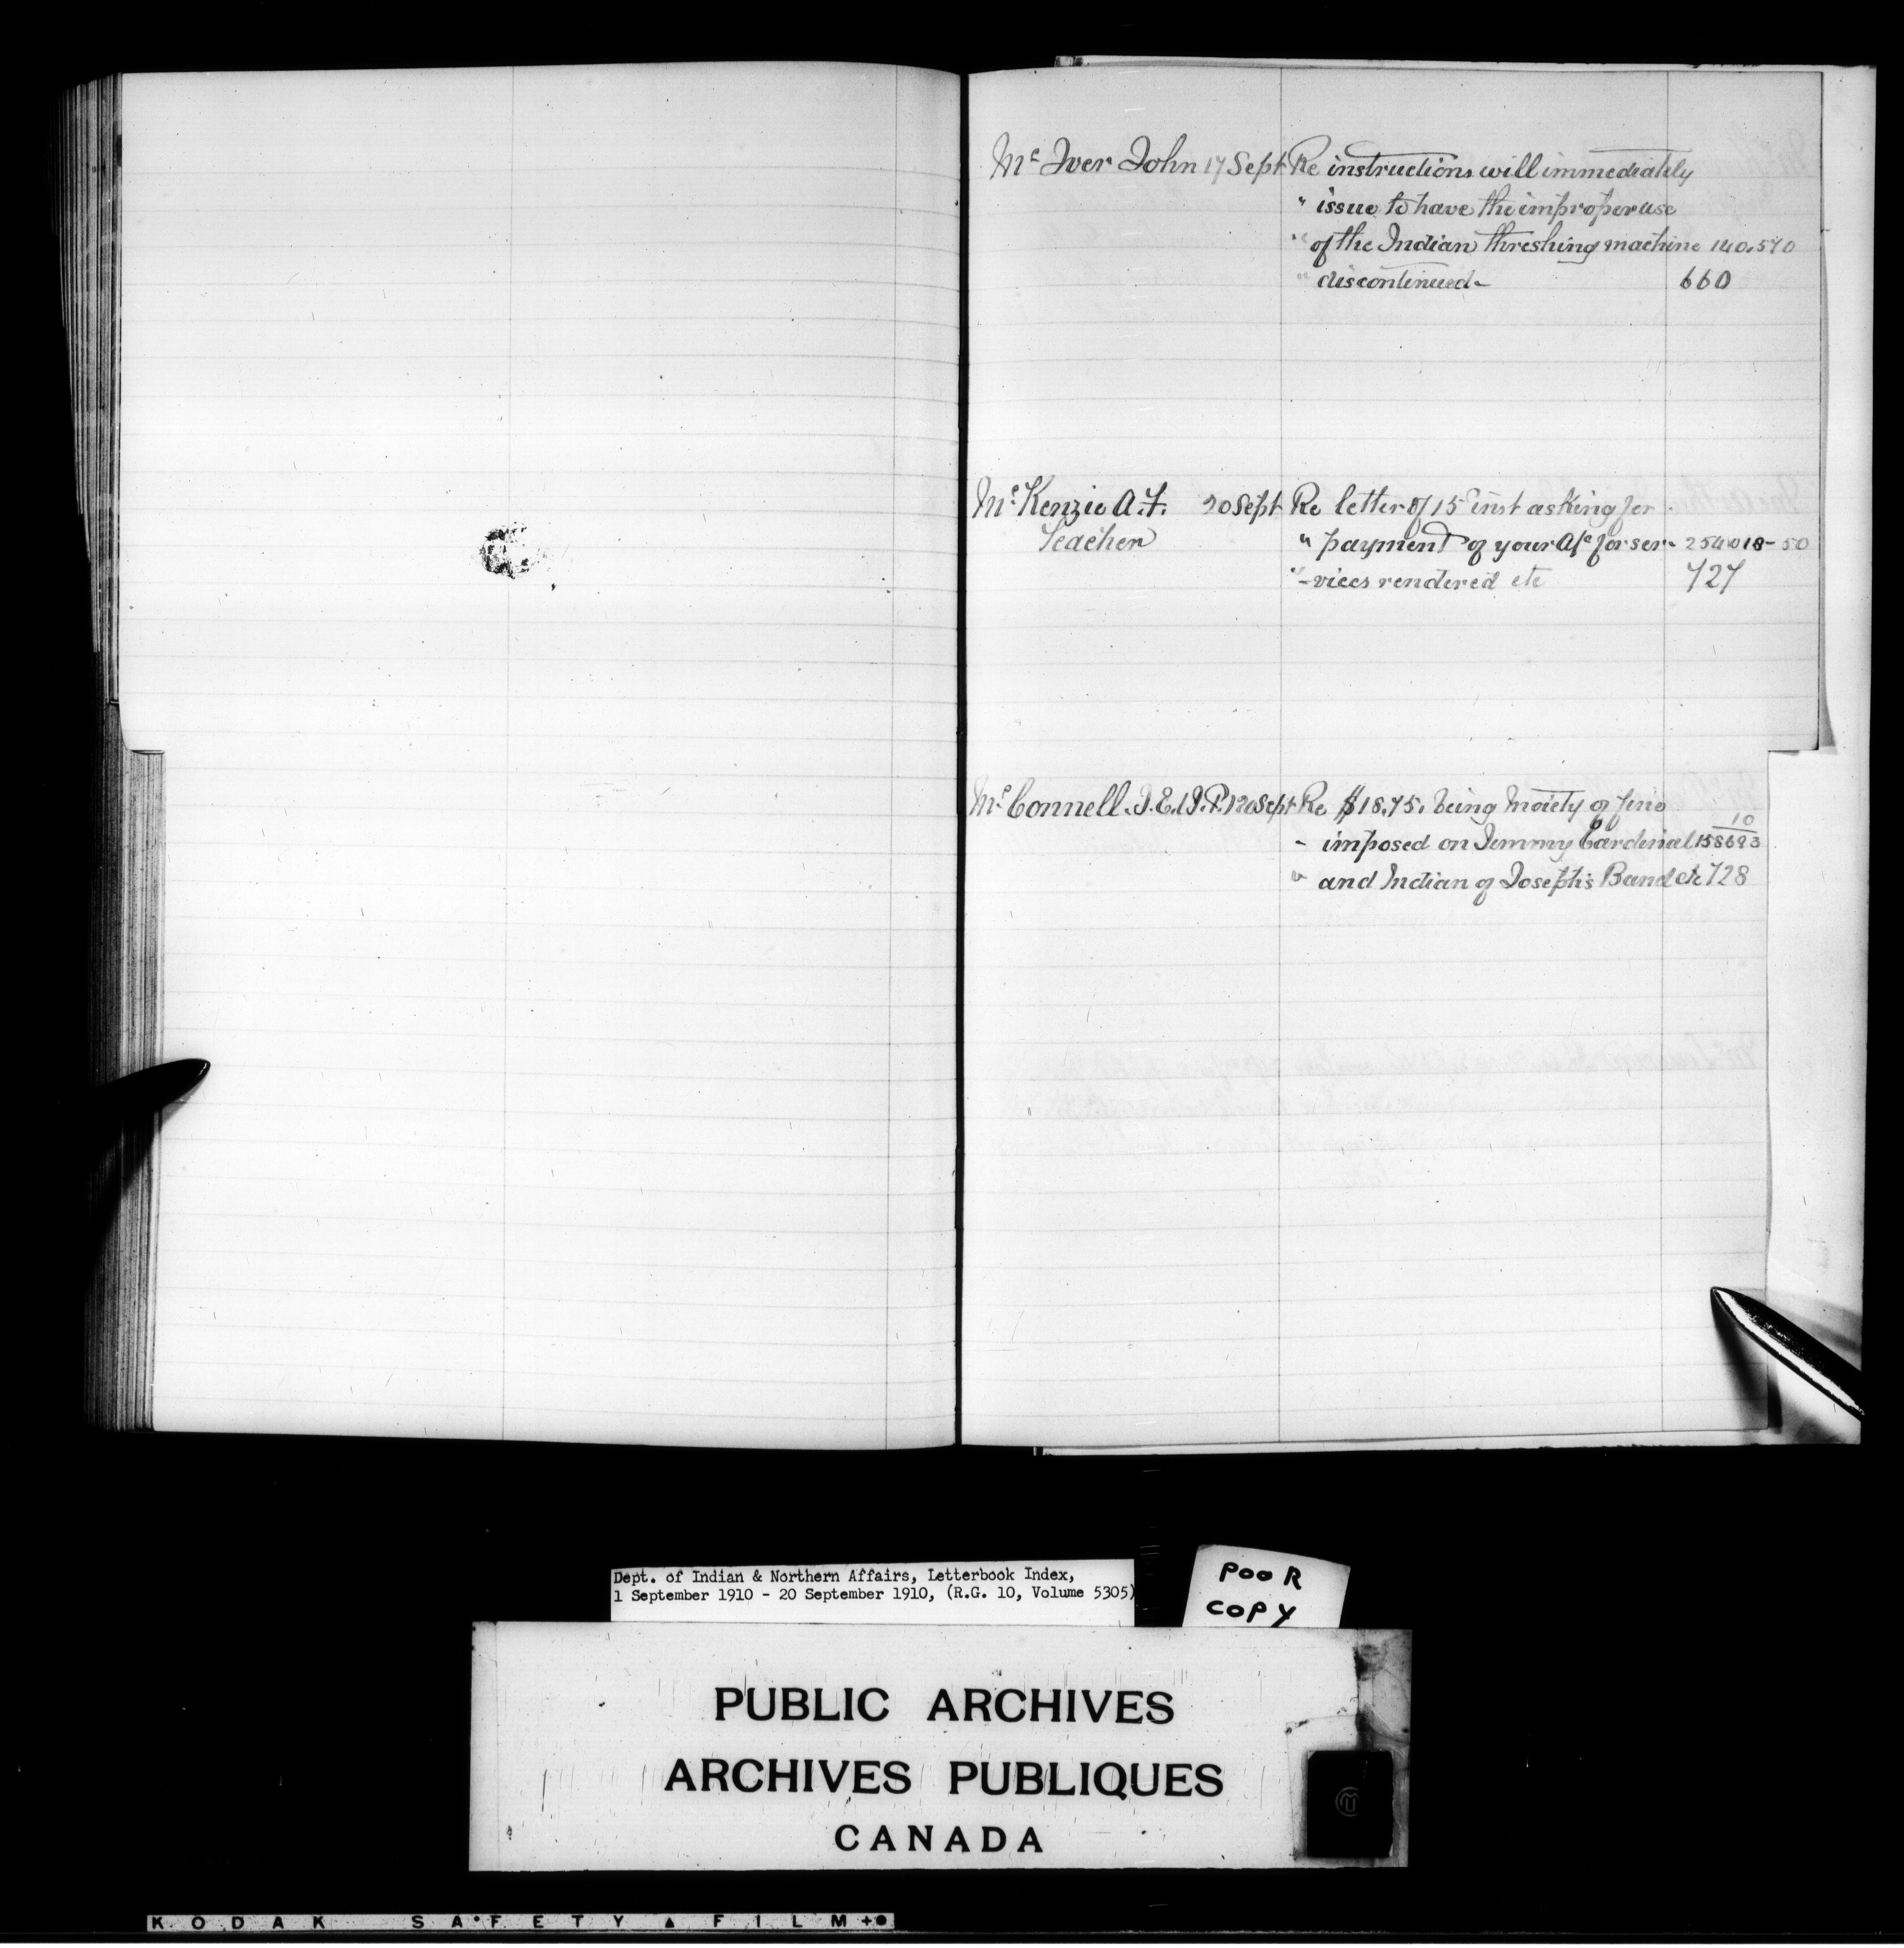 Mc Iver John 17 Sept Re instructions will immediately
" issue to have the improper use
" of the Indian threshing machine 140.570
" discontinued - 660
Mc Kenzie A.F. 20 Sept Re letter of 15th inst asking for
Teacher " payment of your A/c for ser- 254018-50
" -vices rendered etc 727
Mc Connell. J.E. (J.P.) 20 Sept Re $18.75. being moiety of fine
10
" imposed on Jemmy Cardinal 158693
" and Indian of Joseph's Band etc 728
Dept. of Indian & Northern Affairs, Letterbook Index,
1 September 1910 - 20 September 1910, (R.G. 10, Volume 5305)
POOR
COPY
PUBLIC ARCHIVES
ARCHIVES PUBLIQUES
CANADA
KODAK SAFETY FILM